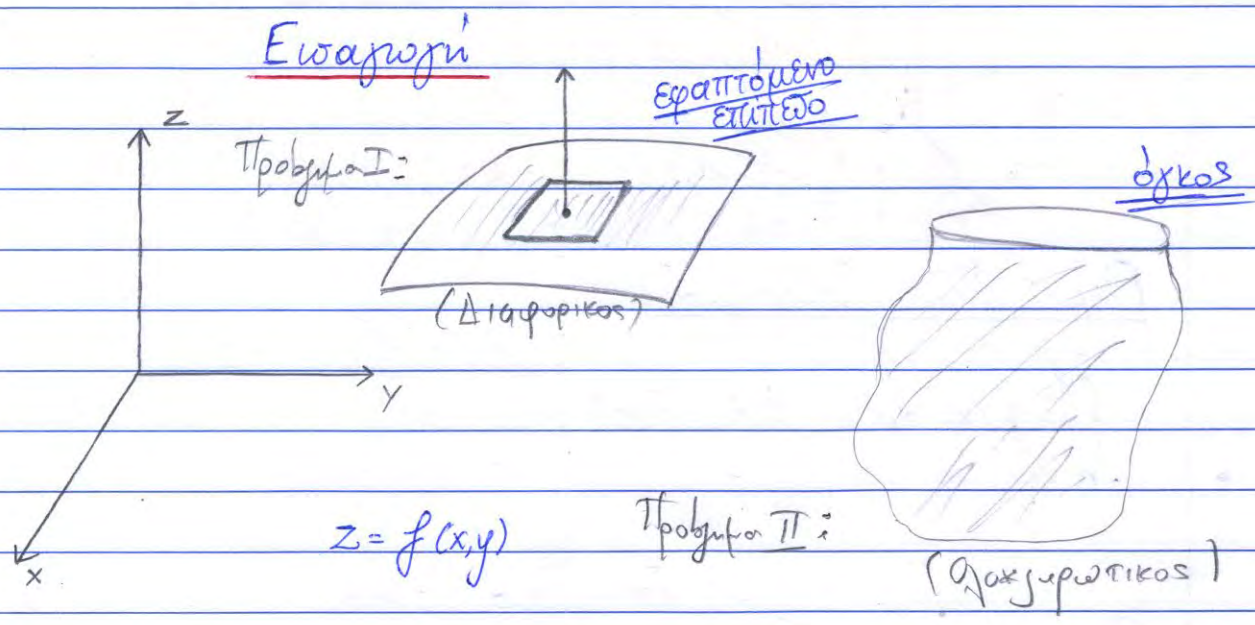 Εισαγωγή
εφαπτόμενο
επίπεδο
z
Πρόβλημα I:
όγκος
(Διαφορικός)
y
z = f(x,y)
Πρόβλημα II:
x
(Ολοκληρωτικός)